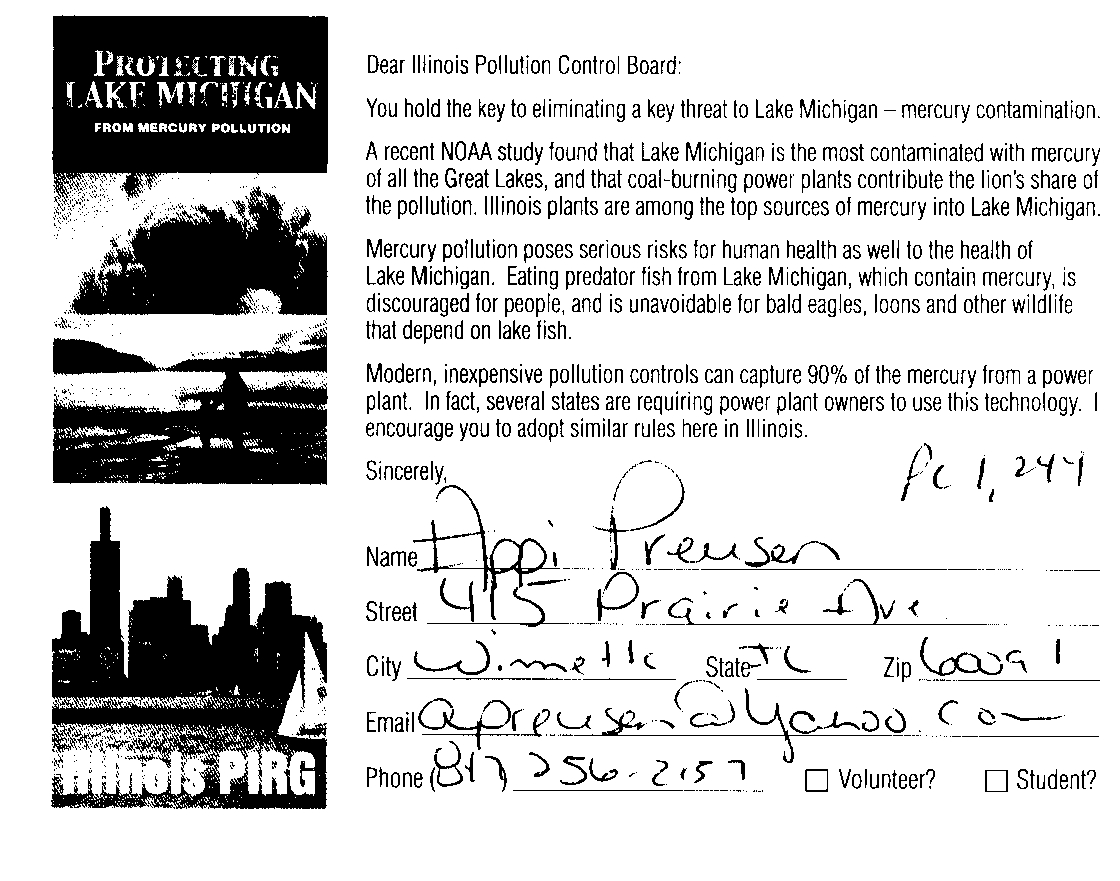 PROTECTING
LAKE MICHIGAN
FROM MERCURY POLLUTION
Illinois PIRG
Dear Illinois Pollution Control Board:
You hold the key to eliminating a key threat to Lake Michigan – mercury contamination.
A recent NOAA study found that Lake Michigan is the most contaminated with mercury
of all the Great Lakes, and that coal-burning power plants contribute the lion's share of
the pollution. Illinois plants are among the top sources of mercury into Lake Michigan.
Mercury pollution poses serious risks for human health as well to the health of
Lake Michigan. Eating predator fish from Lake Michigan, which contain mercury, is
discouraged for people, and is unavoidable for bald eagles, loons and other wildlife
that depend on lake fish.
Modern, inexpensive pollution controls can capture 90% of the mercury from a power
plant. In fact, several states are requiring power plant owners to use this technology. I
encourage you to adopt similar rules here in Illinois.
Sincerely,
PC 1,244
Name Appi Preusen
Street 415 Prairie Ave
City Wilmette State IL Zip 60091
Email apreusen@yahoo.com
Phone (847) 256-2157 Volunteer? Student?